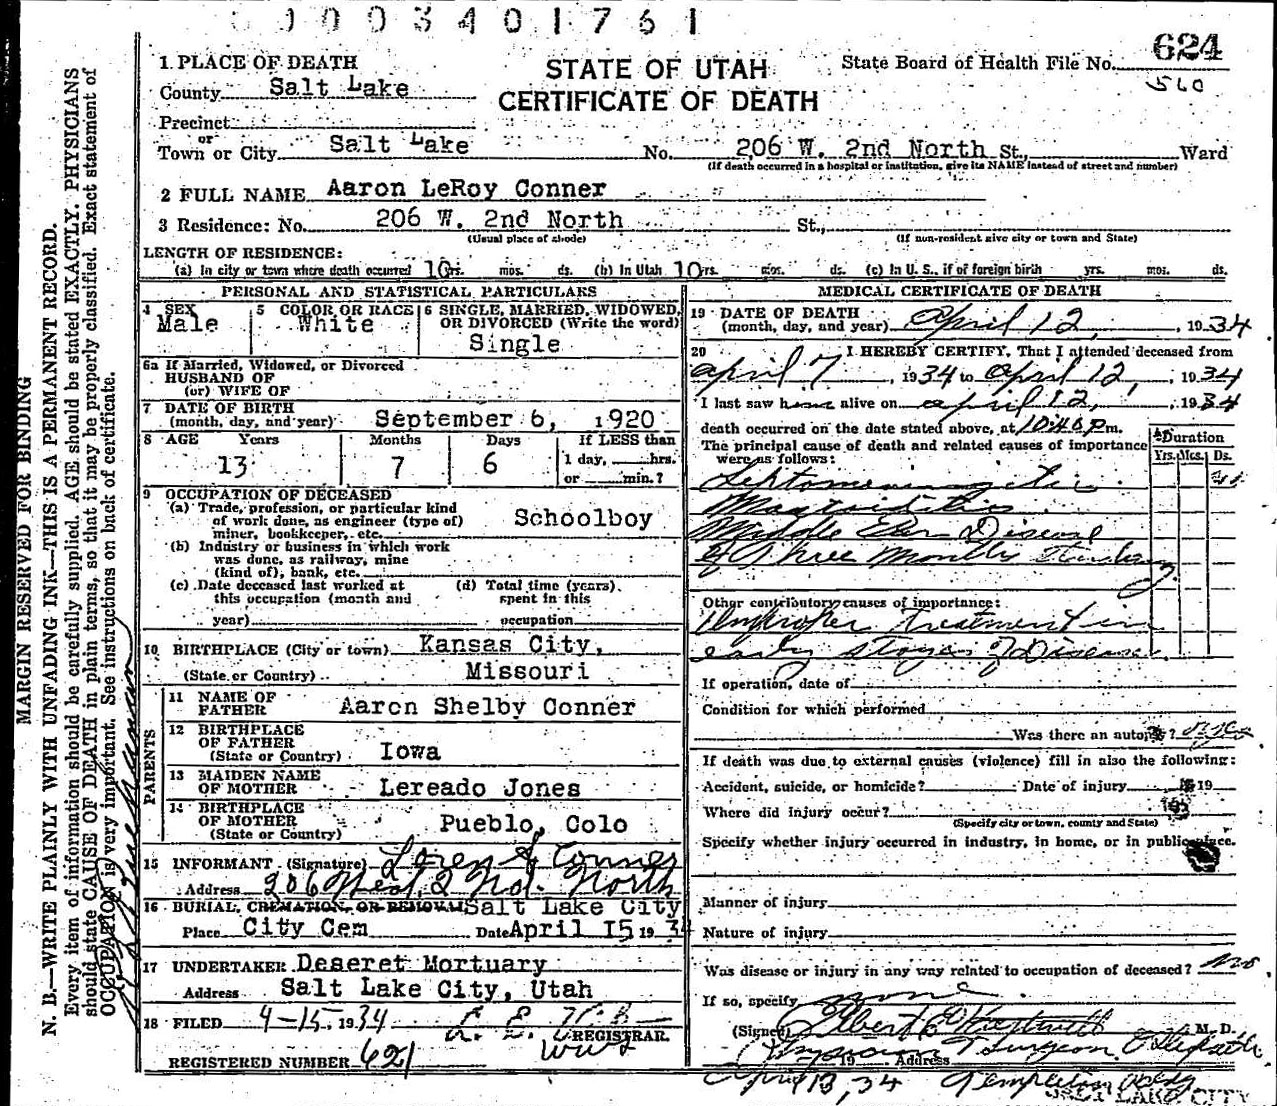 0003401761
1 PLACE OF DEATH
STATE OF UTAH
CERTIFICATE OF DEATH
State Board of Health File No. 624
560
County Salt Lake
Precinct
or
Town or City Salt Lake No. 206 W. 2nd North St., Ward
(If death occurred in a hospital or institution, give its NAME instead of street and number)
2 FULL NAME Aaron LeRoy Conner
3 Residence: No. 206 W. 2nd North St.,
(Usual place of abode) (If non-resident give city or town and State)
LENGTH OF RESIDENCE:
(a) In city or town where death occurred 10 yrs. mos. ds. (b) In Utah 10 yrs. mos. ds. (c) In U. S., if of foreign birth yrs. mos. ds.
PERSONAL AND STATISTICAL PARTICULARS
4 SEX Male
5 COLOR OR RACE White
6 SINGLE, MARRIED, WIDOWED, OR DIVORCED (Write the word)
Single
6a If Married, Widowed, or Divorced
HUSBAND OF
(or) WIFE OF
7 DATE OF BIRTH
(month, day, and year) September 6, 1920
8 AGE Years Months Days If LESS than
13 7 6 1 day, hrs.
or min.?
9 OCCUPATION OF DECEASED
(a) Trade, profession, or particular kind
of work done, as engineer (type of)
miner, bookkeeper, etc. Schoolboy
(b) Industry or business in which work
was done, as railway, mine
(kind of), bank, etc.
(c) Date deceased last worked at
this occupation (month and
year)
(d) Total time (years)
spent in this
occupation
10 BIRTHPLACE (City or town) Kansas City,
(State or Country) Missouri
PARENTS
11 NAME OF
FATHER Aaron Shelby Conner
12 BIRTHPLACE
OF FATHER
(State or Country) Iowa
13 MAIDEN NAME
OF MOTHER Lereado Jones
14 BIRTHPLACE
OF MOTHER
(State or Country) Pueblo, Colo
15 INFORMANT (Signature) Loren S. Conner
Address 206 West 2 Nd. North
16 BURIAL, CREMATION, OR REMOVAL Salt Lake City
Place City Cem Date April 15 1934
17 UNDERTAKER Deseret Mortuary
Address Salt Lake City, Utah
18 FILED 4-15 1934
REGISTRAR.
REGISTERED NUMBER 621
MEDICAL CERTIFICATE OF DEATH
19 DATE OF DEATH
(month, day, and year) April 12, 1934
20 I HEREBY CERTIFY, That I attended deceased from
April 7, 1934 to April 12, 1934
I last saw him alive on April 12, 1934
death occurred on the date stated above, at 10:46 P m.
The principal cause of death and related causes of importance
were as follows:
Duration
Yrs. Mos. Ds.
Leptomeningitis
Mastoiditis
Middle Ear Disease
of Three Months Standing
Other contributory causes of importance:
Improper Treatment in
early stages of Disease.
If operation, date of
Condition for which performed
Was there an autopsy? yes
If death was due to external causes (violence) fill in also the following:
Accident, suicide, or homicide? Date of injury 19
Where did injury occur?
(Specify city or town, county and State)
Specify whether injury occurred in industry, in home, or in public place.
Manner of injury
Nature of injury
Was disease or injury in any way related to occupation of deceased? no
If so, specify none
(Signed) Elbert M. D.
19 Address
April 13, 34 Templeton Bldg
SALT LAKE CITY
MARGIN RESERVED FOR BINDING
N. B.—WRITE PLAINLY WITH UNFADING INK—THIS IS A PERMANENT RECORD.
Every item of information should be carefully supplied. AGE should be stated EXACTLY. PHYSICIANS
should state CAUSE OF DEATH in plain terms, so that it may be properly classified. Exact statement of
OCCUPATION is very important. See instructions on back of certificate.